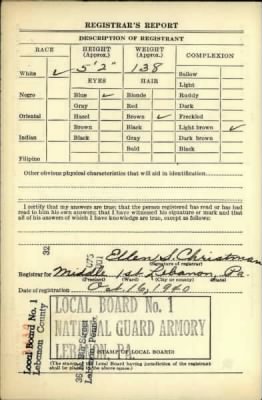 REGISTRAR'S REPORT
DESCRIPTION OF REGISTRANT
RACE HEIGHT (Approx.) WEIGHT (Approx.) COMPLEXION
White ✓ 5'2" 138 Sallow
EYES HAIR Light
Negro Blue ✓ Blonde Ruddy
Gray Red Dark
Oriental Hazel Brown ✓ Freckled
Brown Black Light brown ✓
Indian Black Gray Dark brown
Bald Black
Filipino
Other obvious physical characteristics that will aid in identification
I certify that my answers are true; that the person registered has read or has had
read to him his own answers; that I have witnessed his signature or mark and that
all of his answers of which I have knowledge are true, except as follows:
32
Ellen S. Christman
(Signature of registrar)
Registrar for Middle 1st Lebanon, Pa.
(Precinct) (Ward) (City or county) (State)
Date of registration Oct. 16, 1940
LOCAL BOARD No. 1
NATIONAL GUARD ARMORY
LEBANON, PA.
(STAMP OF LOCAL BOARD)
(The stamp of the Local Board having jurisdiction of the registrant
shall be placed in the above space.)
Local Board No. 1
Lebanon County
36